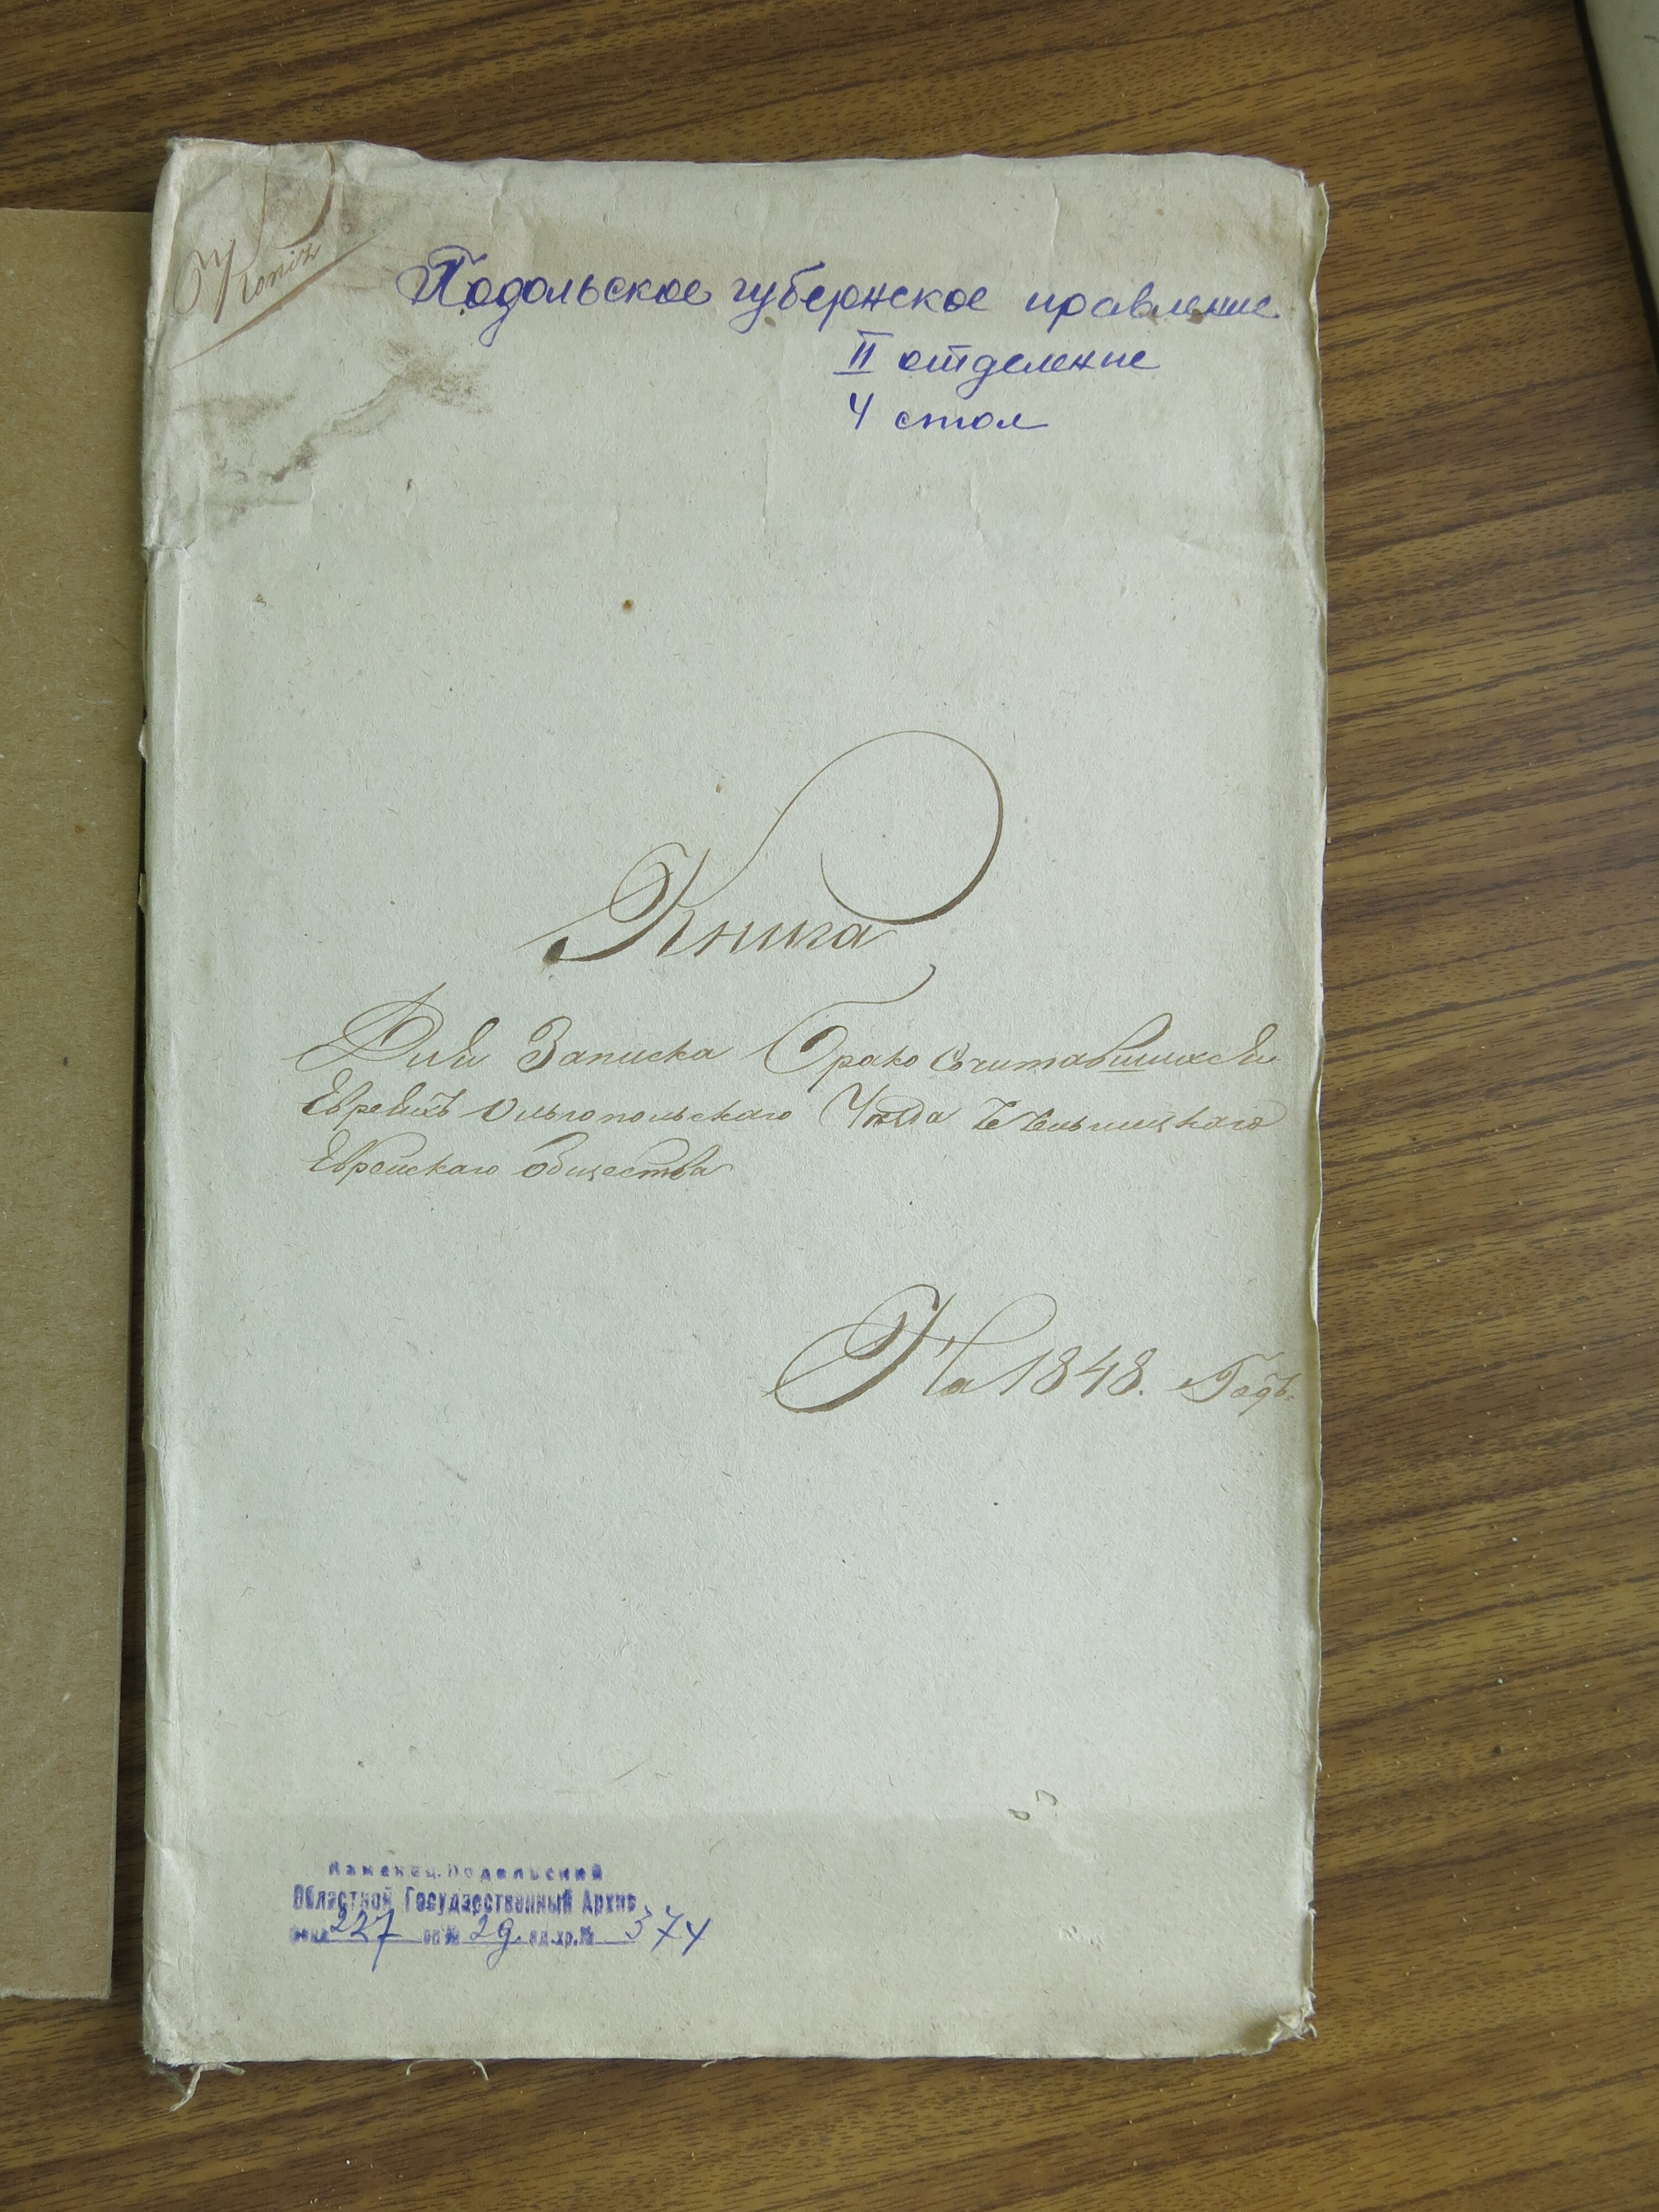 Копія
Подольское губернское правление
II отделение
4 стол
Книга
Для Записка Брако Сочитавшихся
Евреихъ Ольгопольского Уезда
Еврейскаго Общества
На 1848. Годъ.
Каменец-Подольский
Областной Государственный Архив
фонд 227 оп № 29 ед.хр.№ 374